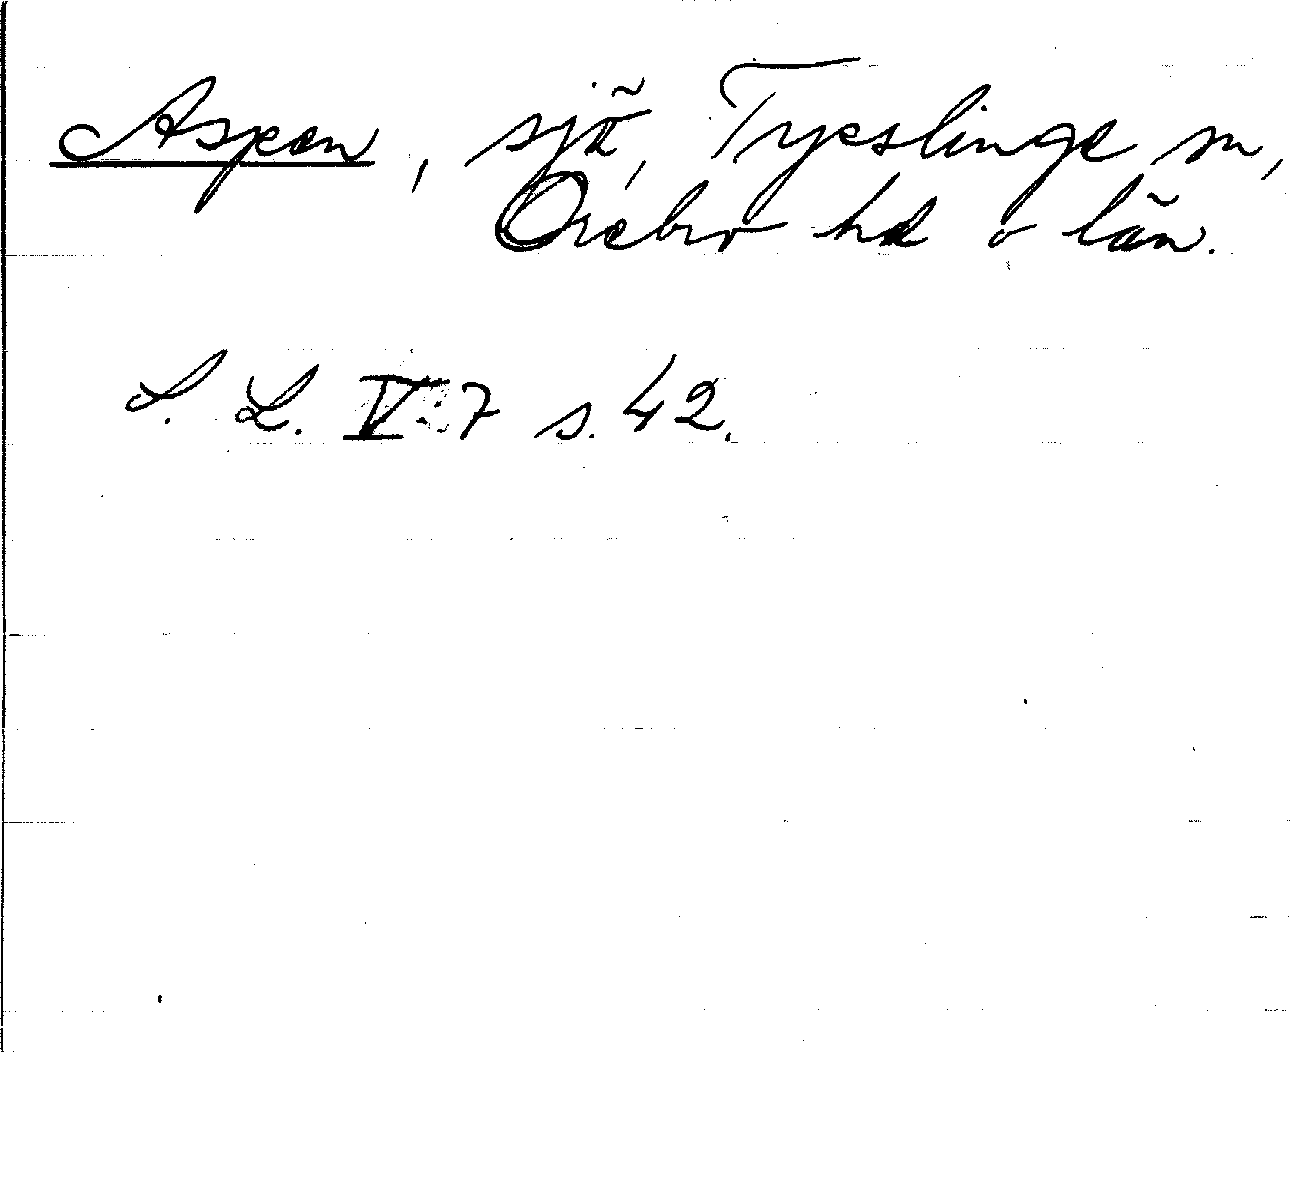 Aspen, sjö, Tyeslinge sn,
Örebro hd o län.
S. L. V:7 s. 42.